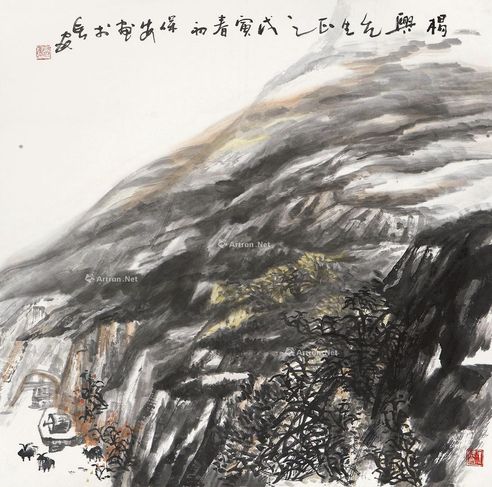 楊興先生正之戊寅春初保安畫於長安
Artron.Net
Artron.Net
Artron.Net